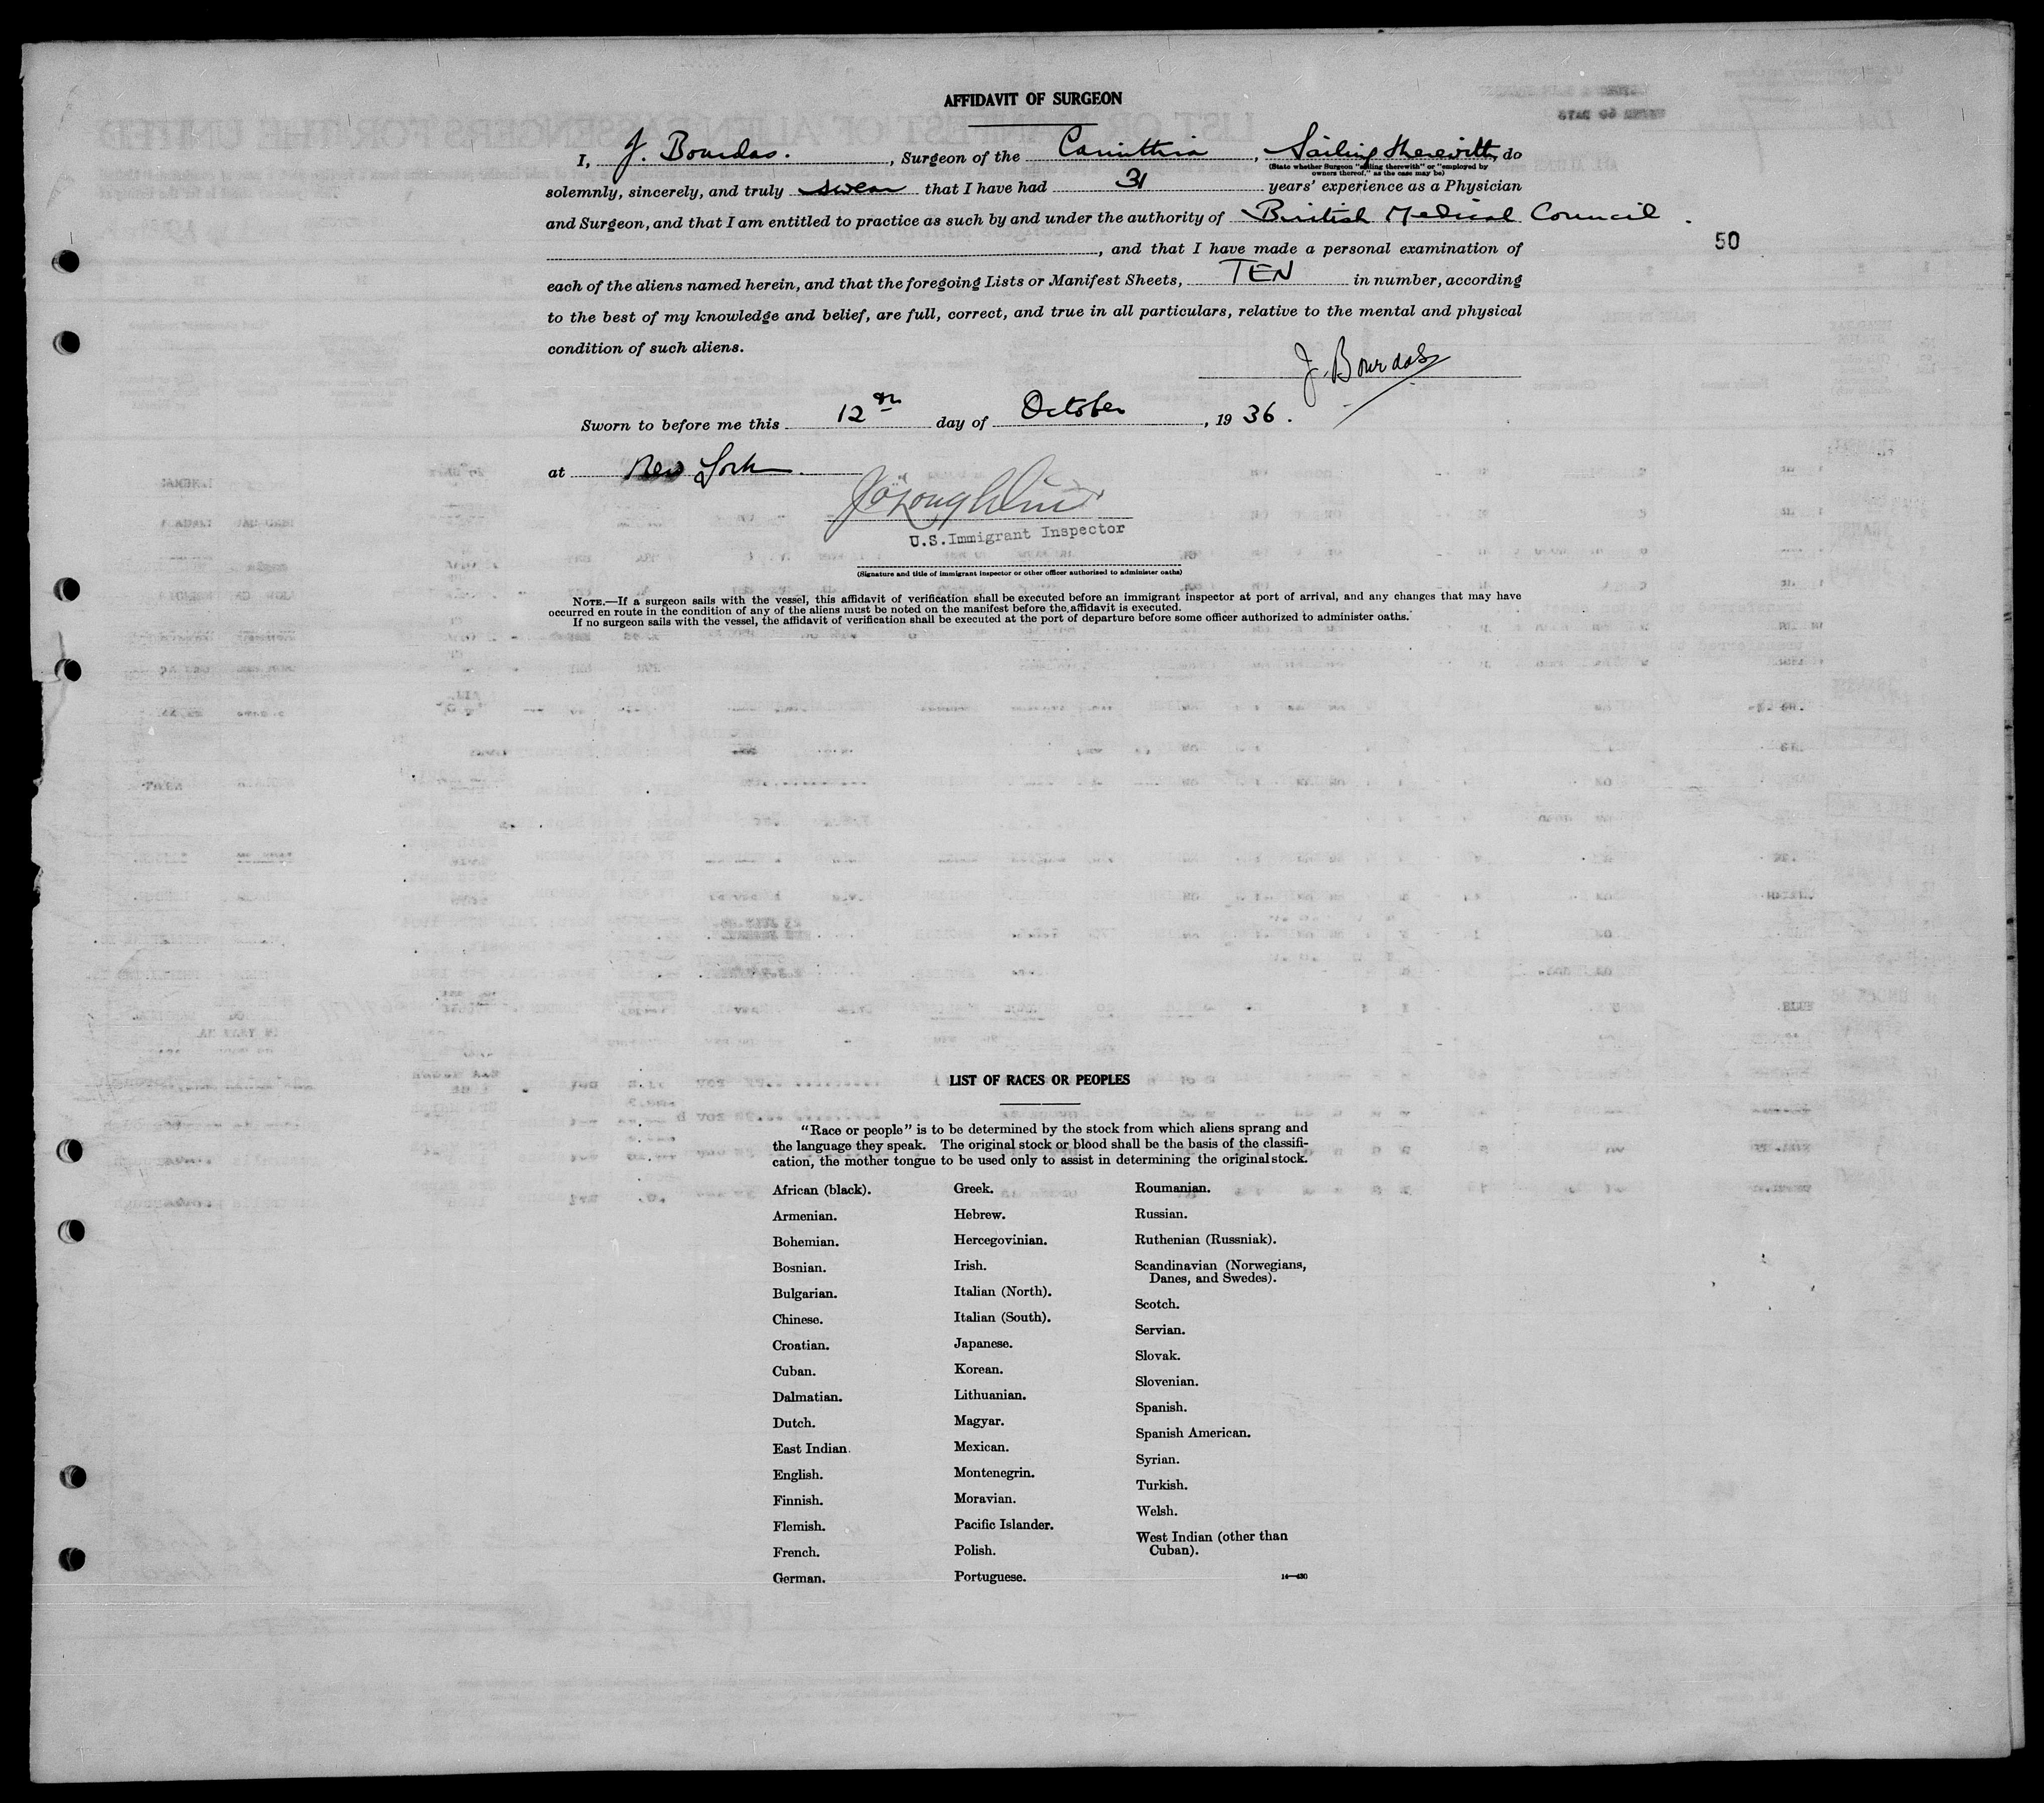 AFFIDAVIT OF SURGEON
I, J. Bourdas. , Surgeon of the Carinthia , Sailing therewith, do
(State whether Surgeon "sailing therewith" or "employed by
owners thereof," as the case may be)
solemnly, sincerely, and truly swear that I have had 31 years' experience as a Physician
and Surgeon, and that I am entitled to practice as such by and under the authority of British Medical Council .
, and that I have made a personal examination of
50
each of the aliens named herein, and that the foregoing Lists or Manifest Sheets, TEN in number, according
to the best of my knowledge and belief, are full, correct, and true in all particulars, relative to the mental and physical
condition of such aliens.
J. Bourdas
Sworn to before me this 12th day of October , 19 36 .
at New York .
U.S.Immigrant Inspector
(Signature and title of immigrant inspector or other officer authorized to administer oaths)
NOTE.—If a surgeon sails with the vessel, this affidavit of verification shall be executed before an immigrant inspector at port of arrival, and any changes that may have
occurred en route in the condition of any of the aliens must be noted on the manifest before the affidavit is executed.
If no surgeon sails with the vessel, the affidavit of verification shall be executed at the port of departure before some officer authorized to administer oaths.
LIST OF RACES OR PEOPLES
"Race or people" is to be determined by the stock from which aliens sprang and
the language they speak. The original stock or blood shall be the basis of the classifi-
cation, the mother tongue to be used only to assist in determining the original stock.
African (black).
Armenian.
Bohemian.
Bosnian.
Bulgarian.
Chinese.
Croatian.
Cuban.
Dalmatian.
Dutch.
East Indian.
English.
Finnish.
Flemish.
French.
German.
Greek.
Hebrew.
Hercegovinian.
Irish.
Italian (North).
Italian (South).
Japanese.
Korean.
Lithuanian.
Magyar.
Mexican.
Montenegrin.
Moravian.
Pacific Islander.
Polish.
Portuguese.
Roumanian.
Russian.
Ruthenian (Russniak).
Scandinavian (Norwegians,
Danes, and Swedes).
Scotch.
Servian.
Slovak.
Slovenian.
Spanish.
Spanish American.
Syrian.
Turkish.
Welsh.
West Indian (other than
Cuban).
14—430